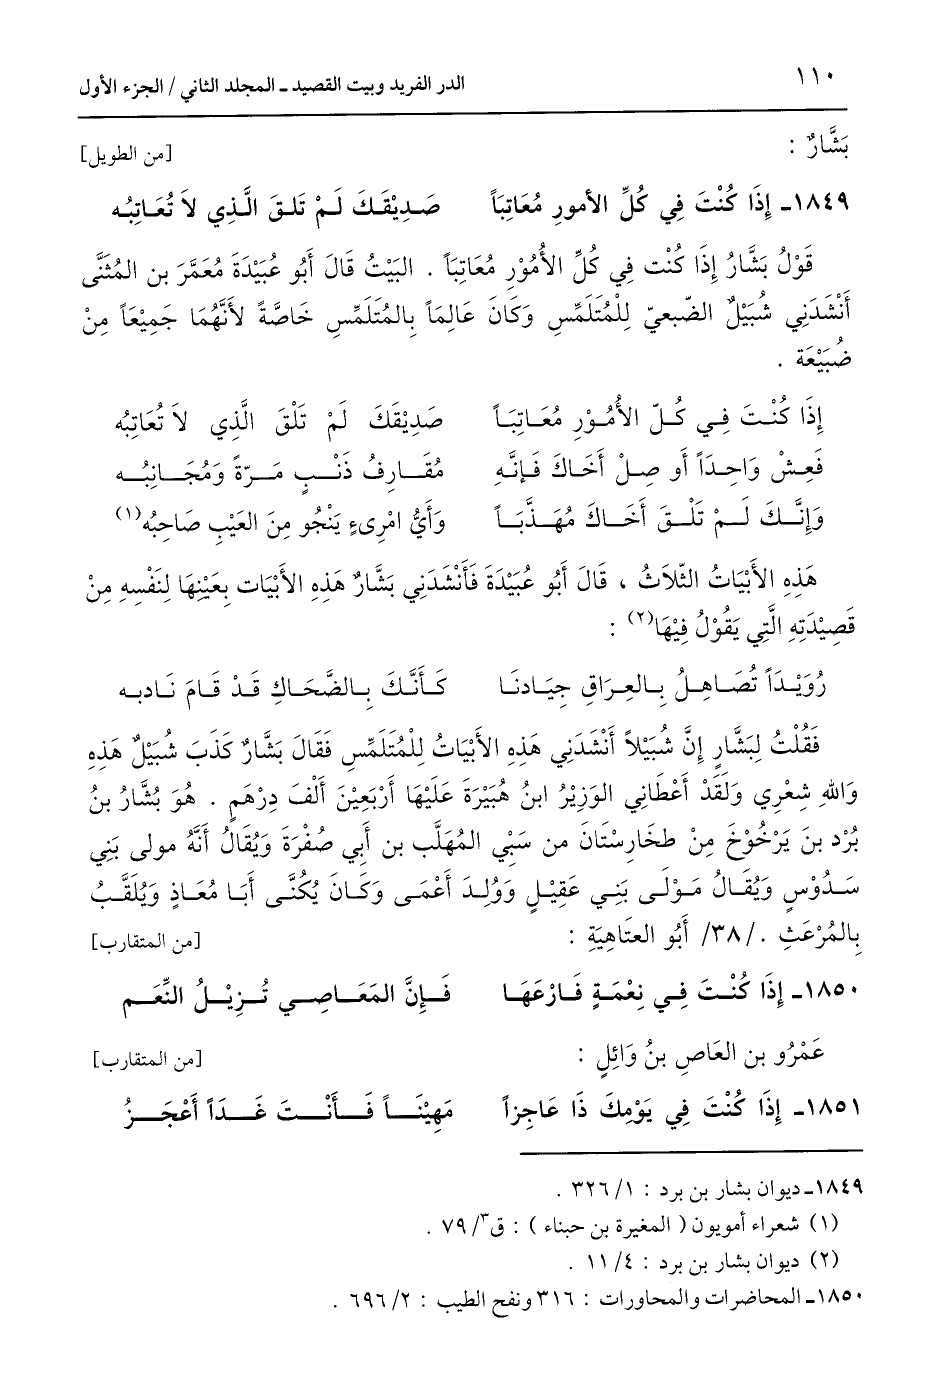 ١١٠ الدر الفريد وبيت القصيد ـ المجلد الثاني / الجزء الأول
بَشَّارٌ : [من الطويل]
١٨٤٩ـ إِذَا كُنْتَ فِي كُلِّ الأمورِ مُعَاتِبَاً صَدِيْقَكَ لَمْ تَلـقَ الَّذِي لاَ تُعَاتِبُه
قَوْلُ بَشَّارُ إِذَا كُنْت فِي كُلِّ الأُمُوْرِ مُعَاتِبَاً . البَيْتُ قَالَ أَبُو عُبَيْدَةَ مُعَمَّرَ بن المُثَنَّى
أَنْشَدَنِي شُبَيْلٌ الضّبعيّ لِلْمُتَلَمِّسِ وَكَانَ عَالِمَاً بِالمُتَلَمِّسِ خَاصَّةً لأَنَّهُمَا جَمِيْعَاً مِنْ
ضُبَيْعَة .
إِذَا كُنْتَ فِـي كُـلّ الأُمُـوْرِ مُعَـاتِبَـاً صَدِيْقَكَ لَمْ تَلْقَ الَّذِي لاَ تُعَاتِبُه
فَعِشْ وَاحِـدَاً أَو صِلْ أَخَـاكَ فَـإِنَّه مُقَـارِفُ ذَنْـبٍ مَـرّةً وَمُجَـانِبُـه
وَإِنَّـكَ لَـمْ تَلْـقَ أَخَـاكَ مُهَـذَّبَـاً وَأَيُّ امْرِىءٍ يَنْجُو مِنَ العَيْبِ صَاحِبُه(١)
هَذِهِ الأَبْيَاتُ الثّلاَثُ ، قَالَ أَبُو عُبَيْدَةَ فَأَنْشَدَنِي بَشَّارُ هَذِهِ الأَبْيَات بِعَيْنِهَا لِنَفْسِهِ مِنْ
قَصِيْدَتِهِ الَّتِي يَقُوْلُ فِيْهَا(٢) :
رُوَيْـدَاً تُصَـاهِـلُ بِـالعِـرَاقِ جِيَـادنَـا كَـأَنَّـكَ بِـالضَّحَـاكِ قَـدْ قَـامَ نَـادبـه
فَقُلْتُ لِبَشَّارٍ إِنَّ شُبَيْلاً أَنْشَدَنِي هَذِهِ الأَبْيَاتُ لِلْمُتَلَمِّسِ فَقَالَ بَشَّارُ كَذَبَ شُبَيْلٌ هَذِهِ
وَاللهِ شِعْرِي وَلَقَدْ أَعْطَانِي الوَزِيْرُ ابنُ هُبَيْرَةَ عَلَيْهَا أَرْبَعِيْنَ أَلْفَ دِرْهَمٍ . هُوَ بُشَّارُ بنُ
بُرْد بنَ يَرْخُوْخَ مِنْ طخَارِسْتَانَ من سَبْي المُهَلَّبِ بن أَبِي صُفْرَةَ وَيُقَالُ أَنَّهُ مولى بَنِي
سَـدُوْسٍ وَيُقَـالُ مَـوْلَـى بَنِـي عَقِيْـلٍ وَوُلِـدَ أَعْمَـى وَكَـانَ يُكُنَّـى أَبَـا مُعَـاذٍ وَيُلَقَّـبُ
بِالمُرْعَثِ ./٣٨/ أَبُو العتَاهِيَةِ : [من المتقارب]
١٨٥٠ـ إِذَا كُنْـتَ فِـي نِعْمَـةٍ فَـارْعَهَـا فَـإِنَّ المَعَـاصِـي تُـزِيْـلُ النِّعَـم
عَمْرُو بن العَاصِ بنُ وَائِلٍ : [من المتقارب]
١٨٥١ـ إِذَا كُنْتَ فِي يَوْمِكَ ذَا عَاجِزاً مَهِيْنَـاً فَـأَنْـتَ غَـدَاً أَعْجَـزُ
١٨٤٩ـ ديوان بشار بن برد : ٣٢٦/١ .
(١) شعراء أمويون ( المغيرة بن حبناء ) : ق٧٩/٣ .
(٢) ديوان بشار بن برد : ١١/٤ .
١٨٥٠ـ المحاضرات والمحاورات : ٣١٦ ونفح الطيب : ٦٩٦/٢ .